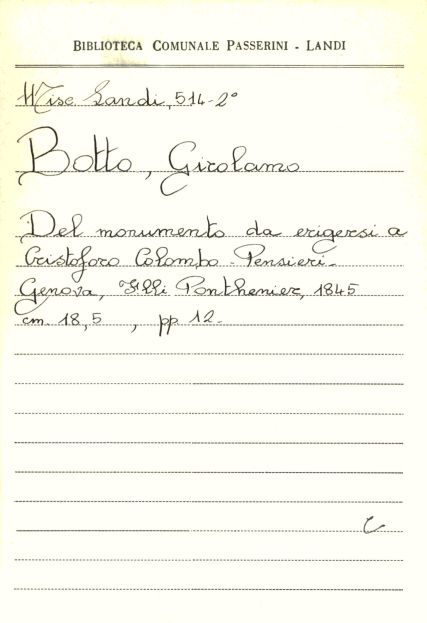 BIBLIOTECA COMUNALE PASSERINI - LANDI
Misc. Landi, 514-2°
Botto, Girolamo
Del monumento da erigersi a
Cristoforo Colombo - Pensieri -
Genova, F.lli Ponthenier, 1845
cm. 18,5 , pp 12 -
C